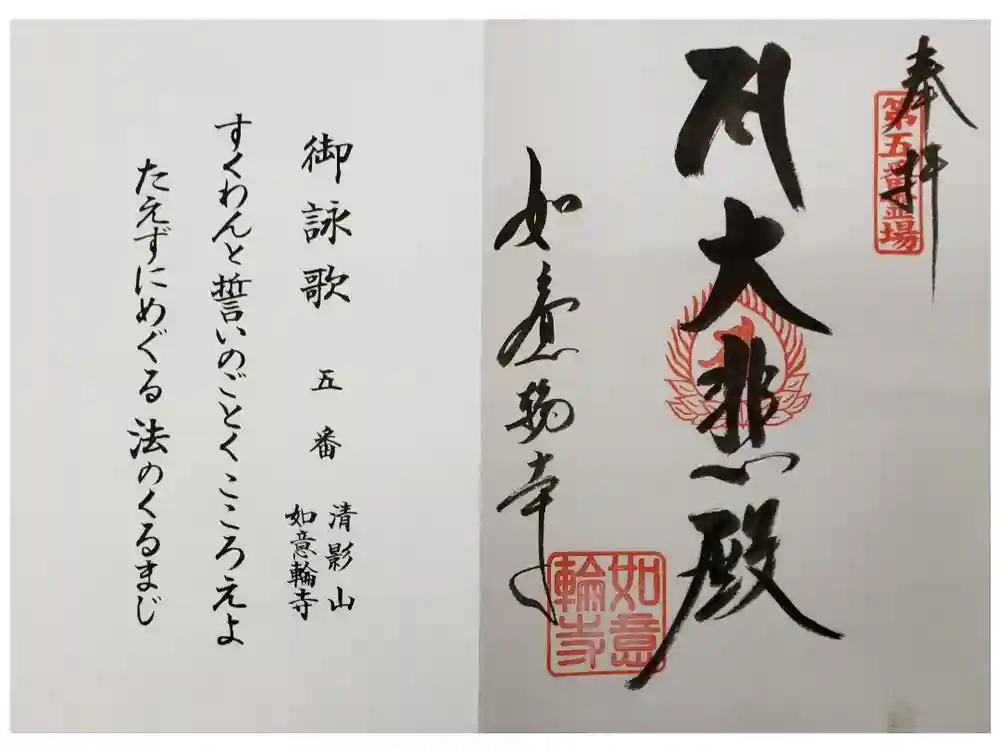 奉拝
第五番霊場
大悲殿
如意輪寺
如意輪寺
御詠歌 五番 清影山
如意輪寺
すくわんと誓いのごとくこころえよ
たえずにめぐる法のくるまじ